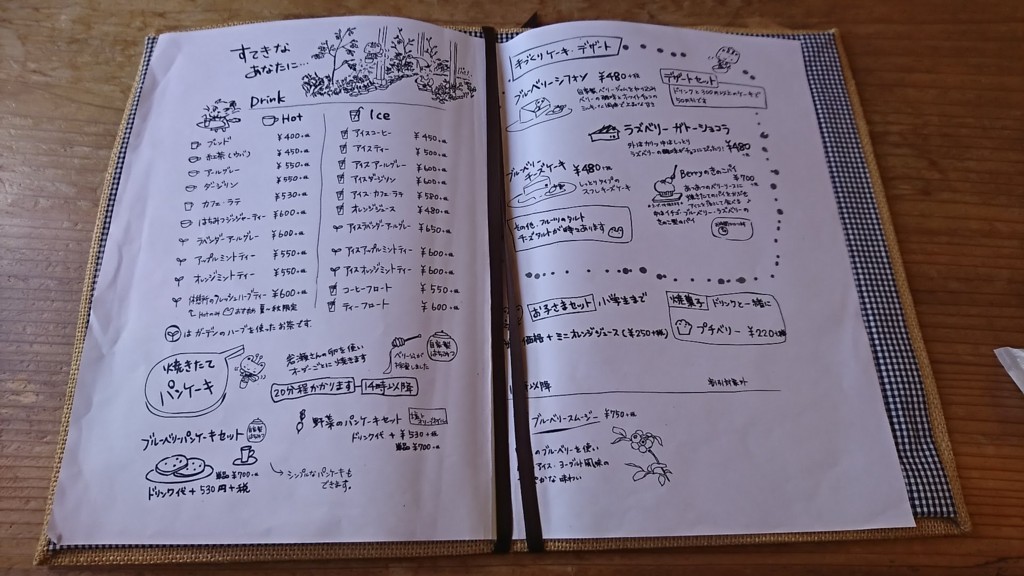 すてきな
あなたに…
Drink
Hot
ブレンド ¥400+税
紅茶(ウバ) ¥450+税
アールグレー ¥550+税
ダージリン ¥550+税
カフェ・ラテ ¥530+税
はちみつジンジャーティー ¥600+税
ラベンダーアールグレー ¥600+税
アップルミントティー ¥550+税
オレンジミントティー ¥550+税
フレッシュハーブティー ¥600+税
Hot only おすすめ 夏〜秋限定
はガーデンのハーブを使ったお茶です。
Ice
アイスコーヒー ¥450+税
アイスティー ¥500+税
アイスアールグレー ¥605+税
アイスダージリン ¥605+税
アイス・カフェ・ラテ ¥580+税
オレンジジュース ¥480+税
アイスラベンダーアールグレー ¥650+税
アイスアップルミントティー ¥600+税
アイスオレンジミントティー ¥600+税
コーヒーフロート ¥550+税
ティーフロート ¥600+税
焼きたて
パンケーキ
さんの卵を使い
オーダーごとに焼きます
20分程かかります 14時以降
自家製
はちみつ
ブルーベリーパンケーキセット
自家製
はちみつ
単品¥700+税
ドリンク代+530円+税
野菜のパンケーキセット
ドリンク代+¥530+税
単品¥700+税
シンプルなパンケーキも
できます。
手づくりケーキ・デザート
ブルーベリーシフォン ¥480+税
デザートセット
ドリンクと300円以上のケーキで
50円引き
ラズベリー ガトーショコラ
外はカリッ中はしっとり
ラズベリーの酸味がチョコにぴったり! ¥480+税
ブルーベリー
チーズケーキ ¥480+税
しっとりタイプの
スフレチーズケーキ
Berryのきのこパイ
¥700+税
中はイチゴ・ブルーベリー・ラズベリーの
きのこ型のパイ
その他、フルーツのタルト
チーズタルトが時々あります
お子さまセット 小学生まで
価格+ミニオレンジジュース(¥250+税)
焼菓子 ドリンクと一緒に
プチベリー ¥220+税
以降
割引対象外
ブルーベリースムージー ¥750+税
のブルーベリーを使い
アイス・ヨーグルト風味の
かな味わい